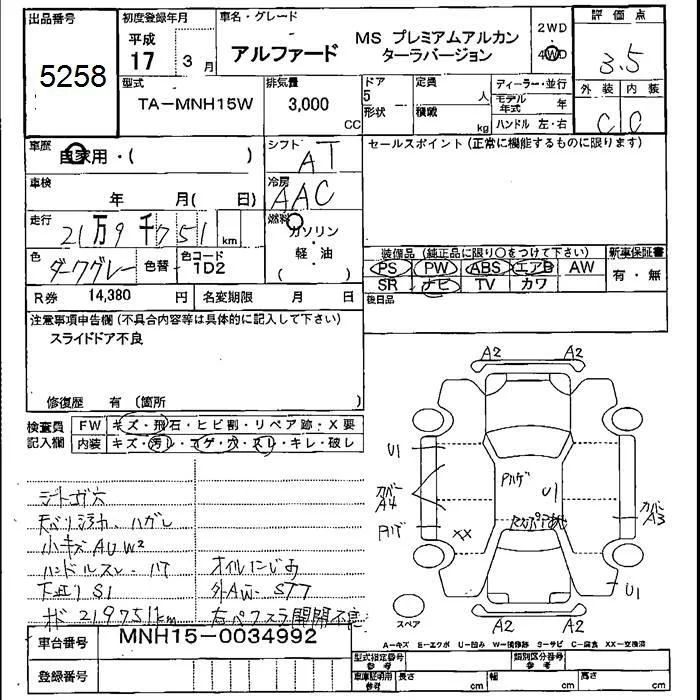 出品番号
5258
初度登録年月
平成
17 3月
車名・グレード
アルファード
MS プレミアムアルカン
ターラバージョン
2WD
4WD
評価点
3.5
外装 内装
C C
型式
TA-MNH15W
排気量
3,000
CC
ドア
5
形状
定員
人
積載
kg
ディーラー・並行
モデル年式 年
ハンドル 左・右
車歴
自家用・( )
シフト
AT
セールスポイント (正常に機能するものに限ります)
車検
年 月( 日)
冷房
AAC
走行
21万9千751 km
燃料
ガソリン
・
軽・油
( )
色
ダークグレー
色替
色コード
1D2
装備品 (純正品に限り○をつけて下さい)
新車保証書
PS PW ABS エアB AW
有・無
SR ナビ TV カワ
R券 14,380 円
名変期限 月 日
後日品
注意事項申告欄 (不具合内容等は具体的に記入して下さい)
スライドドア不良
修復歴 有 (箇所 )
検査員
記入欄
FW キズ・飛石・ヒビ割・リペア跡・X要
内装 キズ・汚レ・コゲ・穴・スレ・キレ・破レ
シートコゲ穴
天ハリ汚れ、ハガレ
小キズAUW²
ハンドルスレ・ハゲ
下廻りS1
オイルにじみ
外AW・STT
メーター 219751km
A2 A2
U1
カバー
A4
Pハゲ
XX
Pハゲ
U1
カバー
A3
U1
スペア
A2 A2
車台番号
MNH15-0034992
登録番号
A-キズ E-エクボ U-凹み W-補修跡 S-サビ C-腐食 XX-交換済
型式指定番号
参考
類別区分番号
参考
車庫証明用
参考
長さ cm
幅 cm
高さ cm